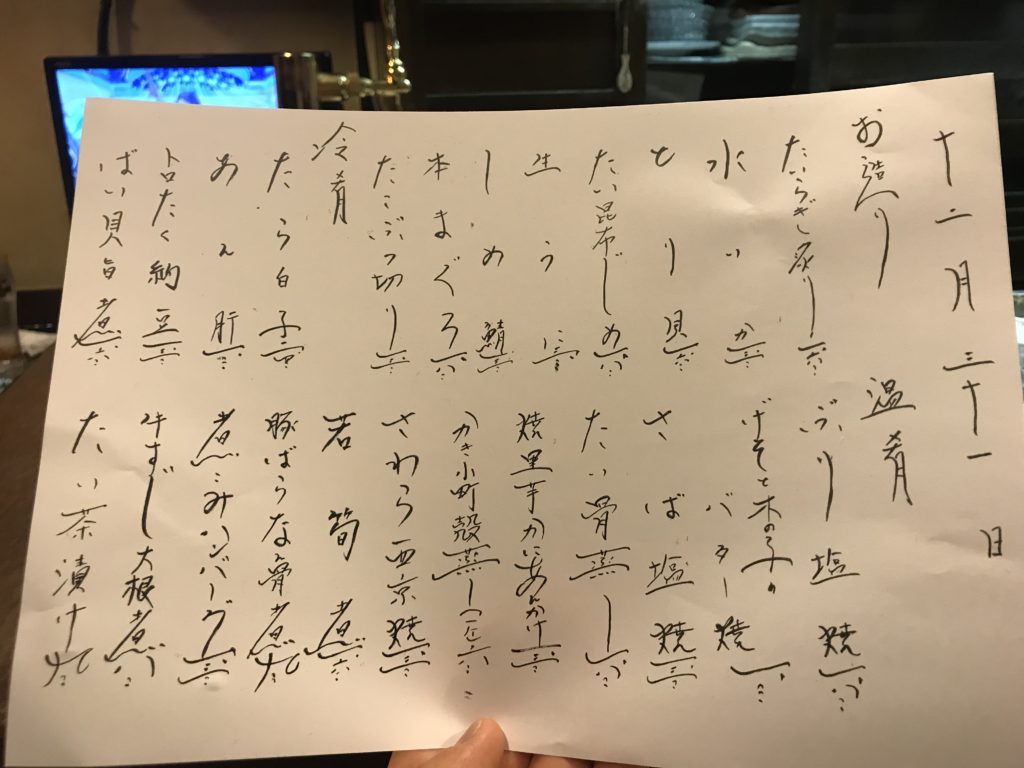 十二月三十一日
お造り
たいらぎ炙り
水いか
とり貝
たい昆布じめ
生うに
しめ鯖
本まぐろ
たこぶつ切り
冷肴
たら白子
あん肝
トロたく納豆
ばい貝旨煮
温肴
ぶり塩焼
げそと木の子の
バター焼
さば塩焼
たい骨蒸し
焼里芋かにあんかけ
かき小町殻蒸し
さわら西京焼
若筍煮
豚ばらなん骨煮
煮こみハンバーグ
牛すじ大根煮
たい茶漬け